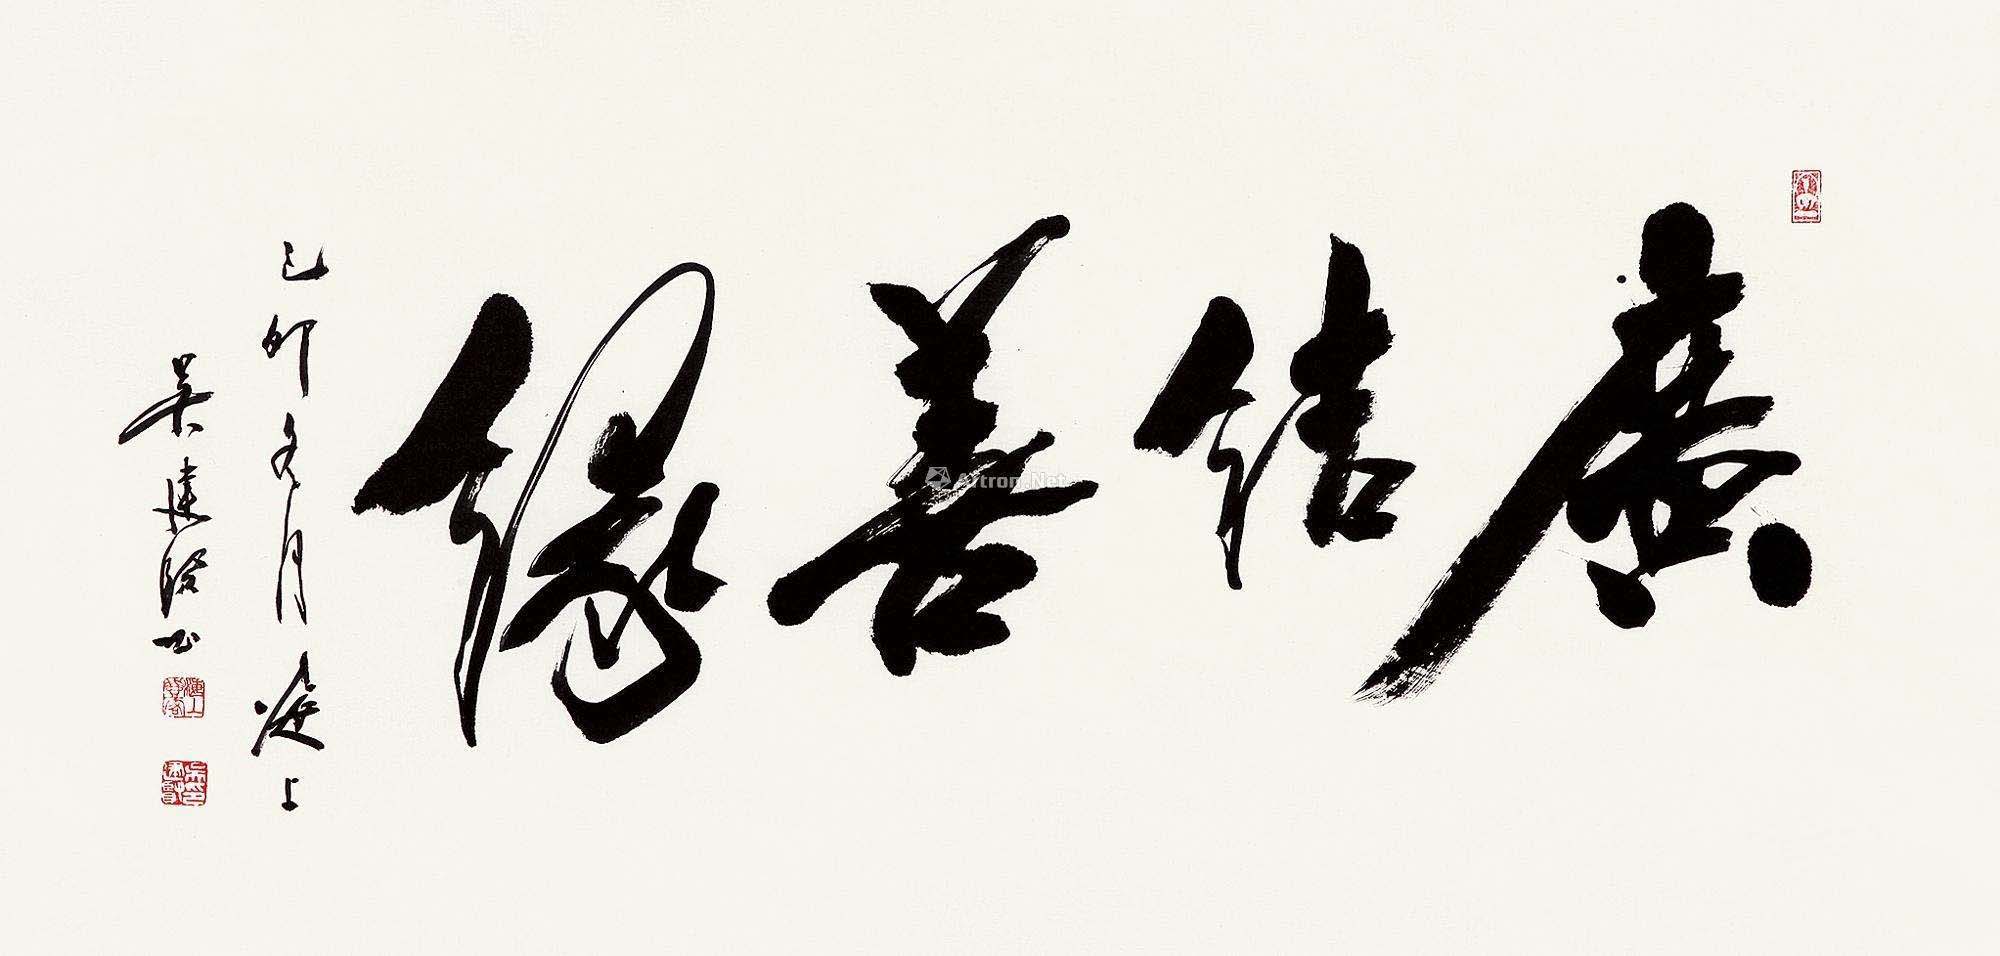 廣結善緣
己卯冬月燈上
吳建賢書
Artron.Net